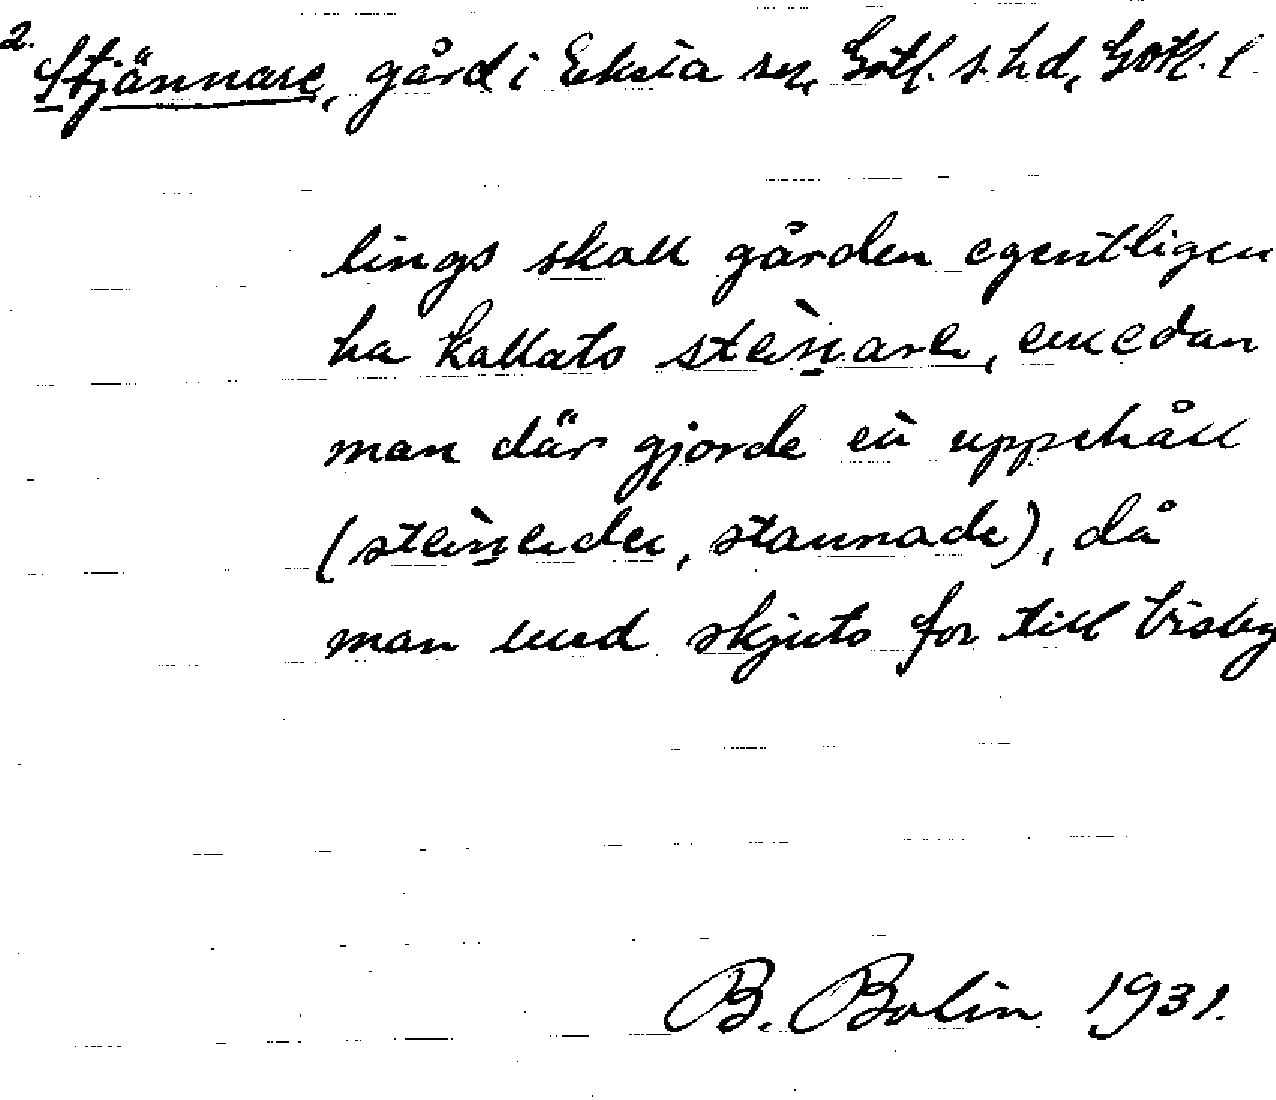 2.
Stjännare, gård i Eksta sn, Gotl. s. hd, Gotl. l
lings skall gården egentligen
ha kallats steìn̲are, emedan
man där gjorde ett uppehåll
(steìn̲ede, stannade), då
man med skjuts for till Visby
B. Bolin 1931.